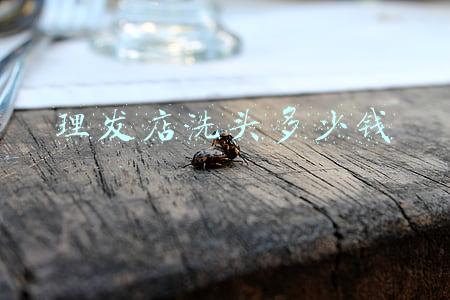 理发店洗头多少钱